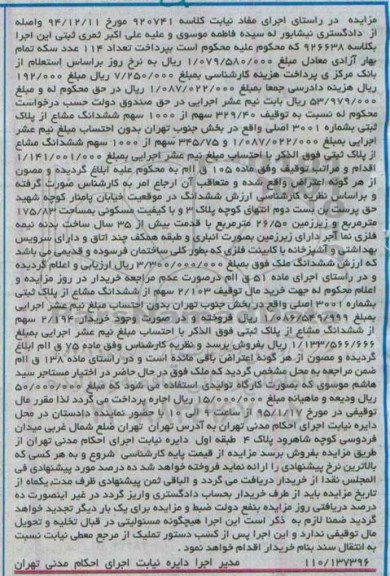 مزایده در راستای اجرای مفاد نیابت کلاسه ۹۲۰۷۴۱ مورخ ۹۴/۱۲/۱۱ واصله
از دادگستری نیشابور له سیده فاطمه موسوی و علیه علی اکبر ثمری ثبتی این اجرا
بکلاسه ۹۲۶۶۳۸ که محکوم علیه محکوم است بپرداخت تعداد ۱۱۴ عدد سکه تمام
بهار آزادی معادل مبلغ ۱/۰۷۹/۵۸۰/۰۰۰ ریال به نرخ روز براساس استعلام از
بانک مرکز ی پرداخت هزینه کارشناسی بمبلغ ۷/۲۵۰/۰۰۰ ریال مبلغ ۱۹۲/۰۰۰
ریال هزینه دادرسی جمعا بمبلغ ۱/۰۸۷/۰۲۲/۰۰۰ ریال در حق محکوم له و مبلغ
۵۳/۹۷۹/۰۰۰ ریال بابت نیم عشر اجرایی در حق صندوق دولت حسب درخواست
محکوم له نسبت به توقیف ۳۲۹/۴۰ سهم از ۱۰۰۰ سهم ششدانگ مشاع از پلاک
ثبتی بشماره ۳۰۰۱ اصلی واقع در بخش جنوب تهران بدون احتساب مبلغ نیم عشر
اجرایی بمبلغ ۱/۰۸۷/۰۲۲/۰۰۰ و ۳۴۵/۷۵ سهم از ۱۰۰۰ سهم ششدانگ مشاع
از پلاک ثبتی فوق الذکر با احتساب مبلغ نیم عشر اجرایی بمبلغ ۱/۱۴۱/۰۰۱/۰۰۰
اقدام و مراتب توقیف وفق ماده ۱۰۵ ق اام به محکوم علیه ابلاغ گردیده و مصون
از هر گونه اعتراض واقع شده و متعاقب آن ارجاع امر به کارشناس صورت گرفته
و براساس نظریه کارشناسی ارزش ششدانگ در موقعیت خیابان پامنار کوچه شهید
حق پرست بن بست دوم انتهای کوچه پلاک ۳ و با کیفیت مسکونی بمساحت ۱۷۵/۸۳
مترمربع و زیرزمین ۲۶/۵۰ مترمربع با قدمت بیش از ۳۵ سال ساخت بدنه نیمه
فلزی نما آجر دارای زیرزمین بصورت انباری و طبقه همکف چند اتاق و دارای سرویس
بهداشتی و آشپزخانه با کابینت فلزی که بطور کلی ساختمان فرسوده و قدیمی می باشد
که ارزش ششدانگ ملک فوق بمبلغ ۳/۳۰۰/۰۰۰/۰۰۰ ریال ارزیابی و اعلام گردیده
و در راستای اجرای ماده ۵۱ ق اام درصورت عدم مراجعه خریدار در روز مزایده و
اعلام محکوم له جهت خرید مال توقیف ۲/۱۰۳ سهم از ششدانگ مشاع از پلاک ثبتی
بشماره ۳۰۰۱ اصلی واقع در بخش جنوب تهران بدون احتساب مبلغ نیم عشر اجرایی
بمبلغ ۱/۰۸۶/۵۴۹/۹۹۹ ریال فروخته و در صورت وجود خریدار ۲/۱۹۴ سهم
از ششدانگ مشاع از پلاک ثبتی فوق الذکر با احتساب مبلغ نیم عشر اجرایی بمبلغ
۱/۱۳۳/۵۶۶/۶۶۶ ریال بفروش برسد و نظریه کارشناس وفق ماده ۷۵ ق اام ابلاغ
گردیده و مصون از هر گونه اعتراض باقی مانده است و در راستای ماده ۱۳۸ ق اام
ضمن مراجعه به محل مشخص گردید که ملک فوق در حال حاضر در اختیار مستاجر سید
هاشم موسوی که بصورت کارگاه تولیدی استفاده می شود که مبلغ ۵۰/۰۰۰/۰۰۰
ریال ودیعه و ماهیانه مبلغ ۱۵/۰۰۰/۰۰۰ ریال اجاره پرداخت می گردد لذا مقرر مال
توقیفی در مورخ ۹۵/۱/۱۷ از ساعت ۹ الی ۱۰ با حضور نماینده دادستان در محل
دایره نیابت اجرای احکام مدنی تهران به آدرس تهران تهران ضلع شمال غربی میدان
فردوسی کوچه شاهرود پلاک ۴ طبقه اول دایره نیابت اجرای احکام مدنی تهران از
طریق مزایده بفروش برسد مزایده از قیمت پایه کارشناسی شروع و به هر کسی که
بالاترین نرخ پیشنهادی را ارائه نماید فروخته خواهد شد ده درصد مورد پیشنهادی فی
المجلس نقدا از خریدار دریافت می گردد و الباقی ثمن پیشنهادی ظرف مدت یکماه از
تاریخ مزایده باید از طرف خریدار بحساب دادگستری واریز گردد در غیر اینصورت ده
درصد دریافتی روز مزایده بنفع دولت ضبط و مزایده برای یک بار دیگر تجدید خواهد
گردید ضمنا لازم به ذکر است این اجرا هیچگونه مسئولیتی در قبال تخلیه و تحویل
مال توقیفی ندارد و این اجرا پس از کسب دستور تملیک از مرجع معطی نیابت نسبت
به انتقال سند بنام خریدار اقدام خواهد نمود .
۱۱۰/۱۳۷۳۹۶ مدیر اجرا دایره نیابت اجرای احکام مدنی تهران